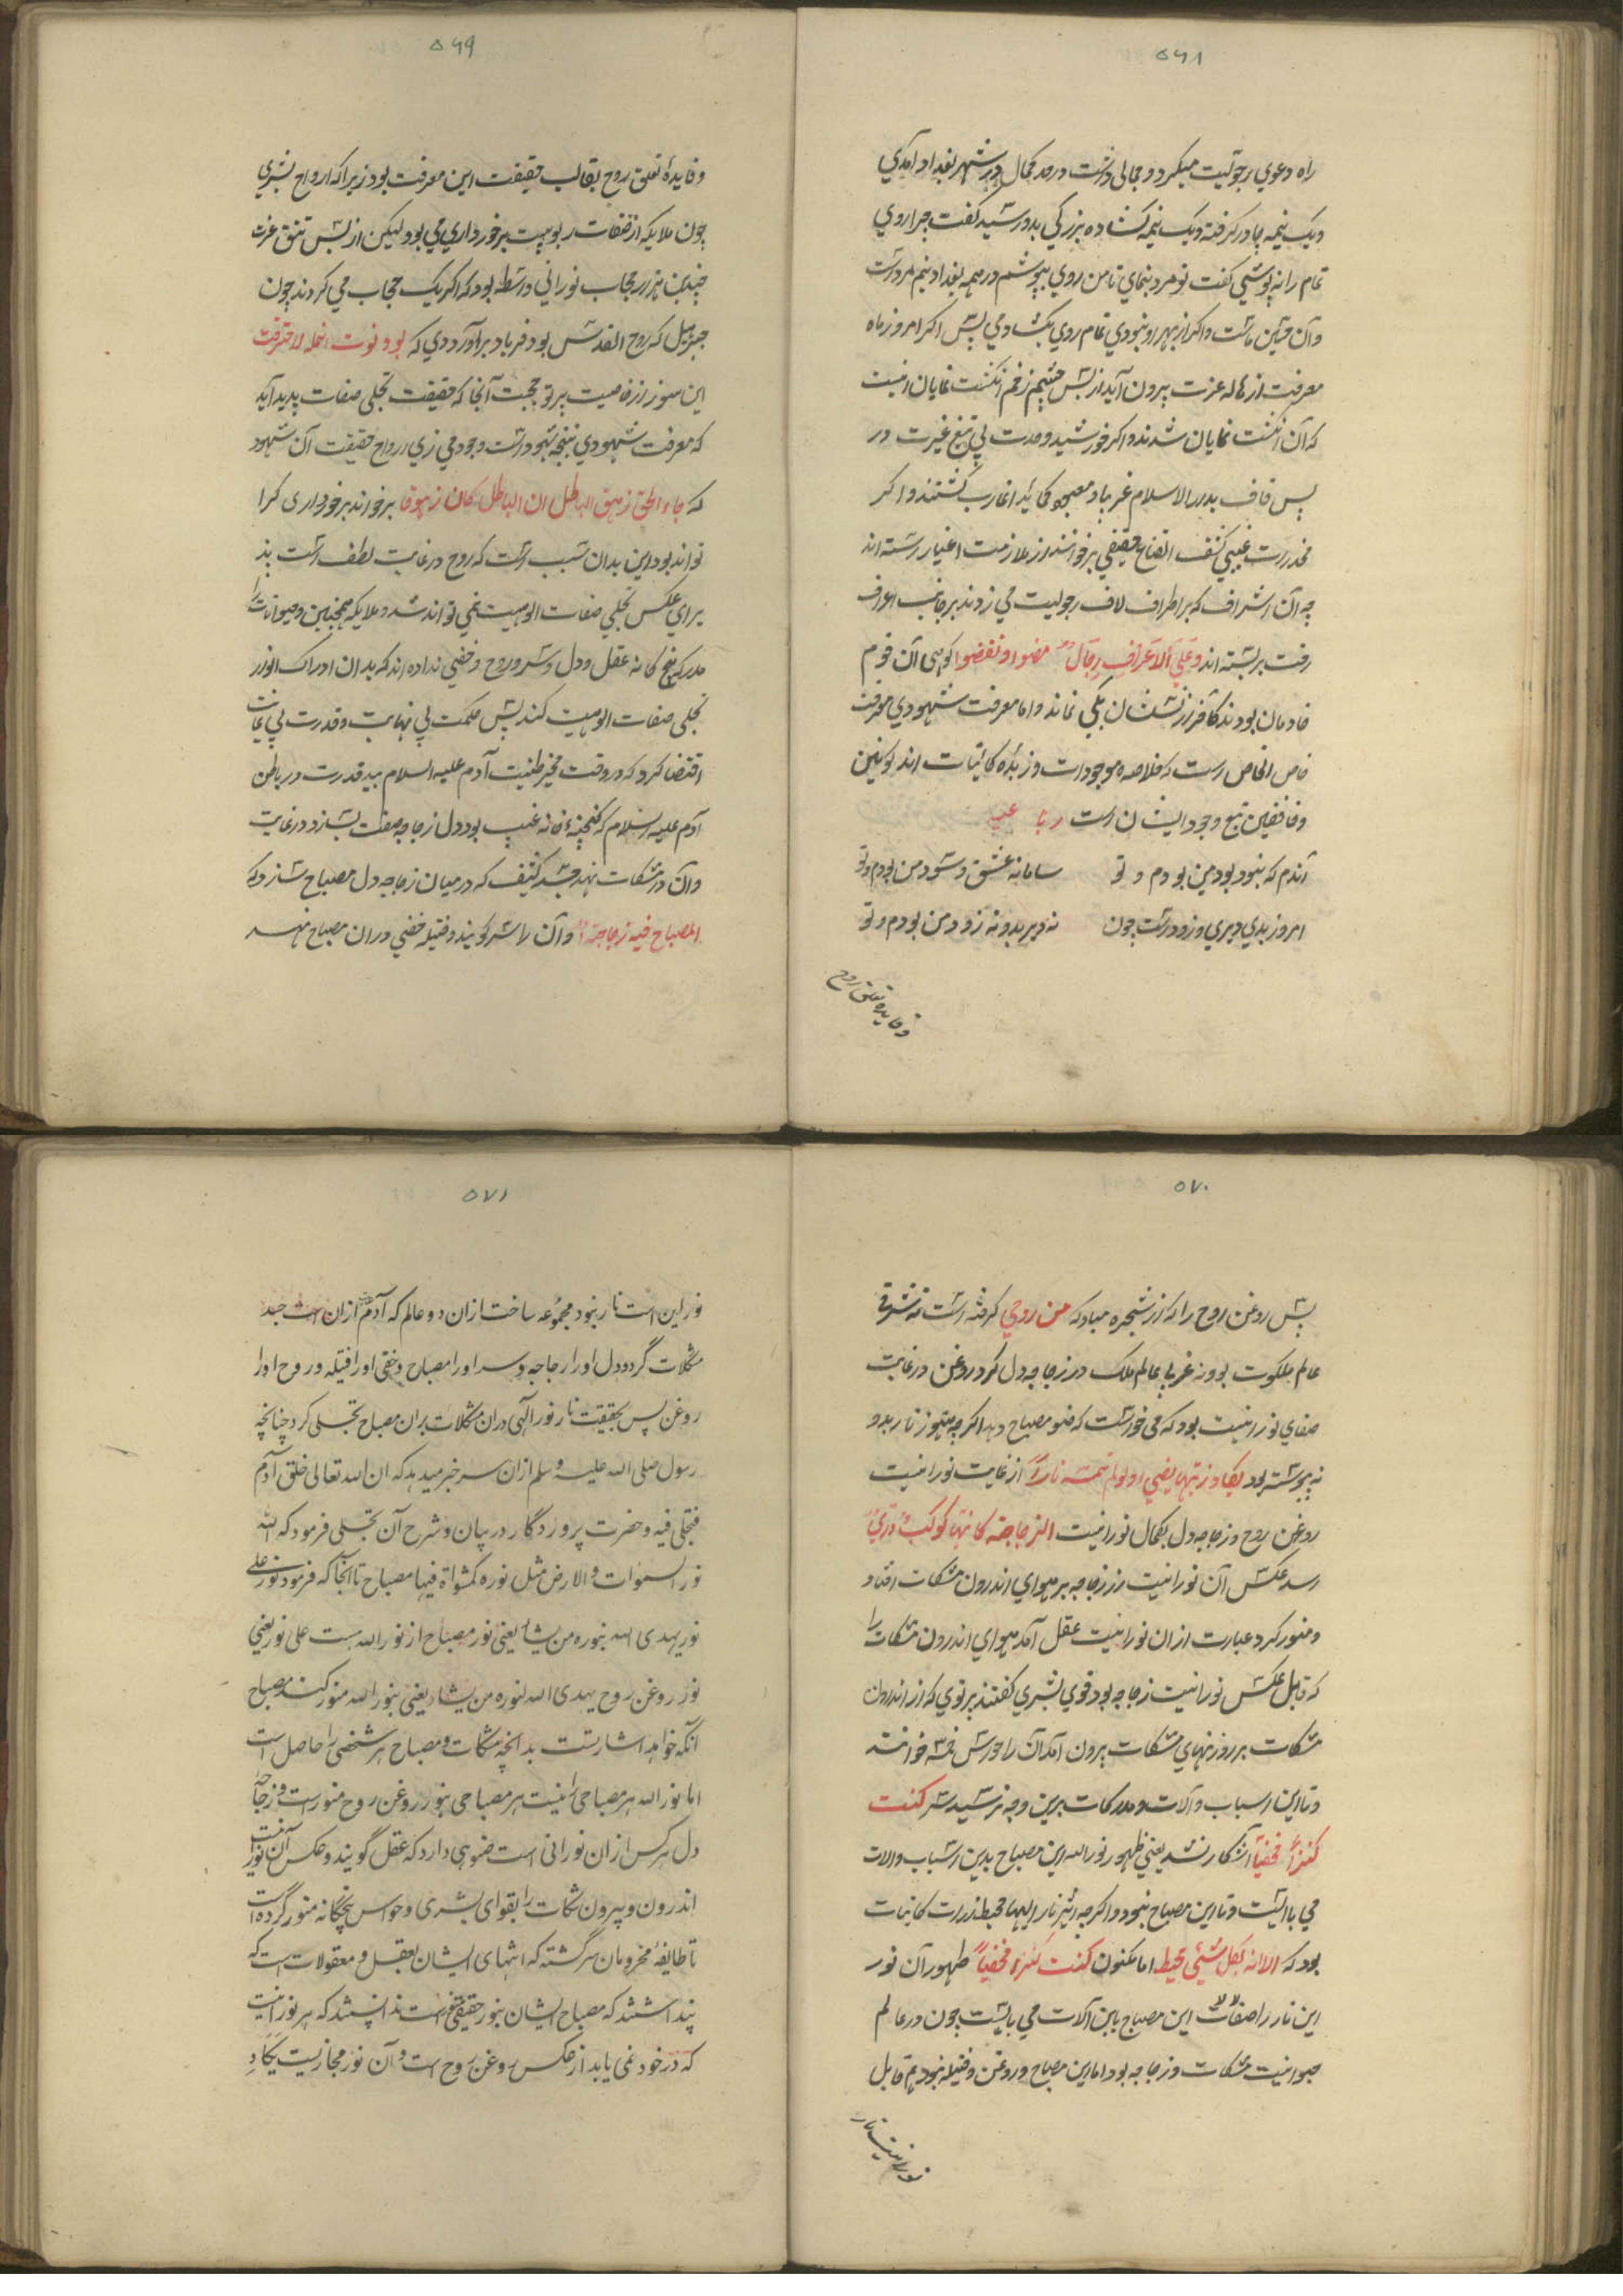 ۵۶۸
راه دعوی رجولیت میکرد و جمالی داشت در حد کمال در شهر بغداد آمدی
و یک نیمه چادر گرفته و یک نیمه کشاده بزرگی بدو رسید گفت چرا روی
تمام را نه پوشی گفت تو مرد بنمای تا من روی بپوشم در همه بغداد نیم مرد است
و آن حسین ماست و اگر از بهر او نبودی تمام روی بکشادمی پس اگر امروز ماه
معرفت از هاله عزت بیرون آید از پس چشم زخم انگشت نمایان نیست
که آن انگشت نمایان شدند و اگر خورشید وحدت بی تیغ غیرت در
پس قاف بدرد الاسلام غریبا و
مخدرات غیبی کشف القناع حقیقی برخوانند از ملازمت اغیار رسته اند
چه آن اشراف که بر اطراف لاف رجولیت می زدند بر جانب اعراف
رفت بربسته اند و علی الاعراف رجال مضوا و نقضوا آن قوم
خادمان بودند کافران نشان نماند و اما معرفت شهودی معرفت
خاص الخاص است که خلاصه موجودات و زبده کائنات اند کونین
و خافقین تبع وجود ایشان است رباعیه
آندم که نبود بود من بودم و تو سامانه عشق و سود من بودم و تو
امروز بدی دیری و زود است چون نه دیر بدو نه زود من بودم و تو
و فایده تعلق روح
۵۶۹
و فایدهٔ تعلق روح بقالب حقیقت این معرفت بود زیرا که ارواح بشری
چون ملایکه از صفات ربوبیت برخورداری می بود لیکن از پس تتق عزت
چندین هزار حجاب نورانی واسطه بود که اگر یک حجاب می کردند چون
جبرئیل که روح القدس بود فریاد برآوردی که لو دنوت انمله لاحترقت
این سوز از خاصیت پرتو حجبت آنجا که حقیقت تجلی صفات پدید آید
که معرفت شهودی نتیجه شهود است وجودمی زی ارواح حقیقت آن شهود
که جاء الحق زهق الباطل ان الباطل کان زهوقا برخواند برخورداری کرا
تواند بود این بدان سبب است که روح در غایت لطف است پذ
یرای عکس تجلی صفات الوهیت نمی تواند شد و ملایکه همچنین و حیوانات را
مدرکه پنج گانه عقل و دل و سر و روح و خفی نداده اند که بدان ادراک انوار
تجلی صفات الوهیت کند پس حکمت بی نهایت و قدرت بی غایت
اقتضا کرد که در وقت تخمیر طینت آدم علیه السلام بید قدرت در باطن
آدم علیه السلام که گنجینهٔ خانه غیب بود دل زجاجه صفت بسازد در غایت
و آن در مشکات نهد جسد کثیف که در میان زجاجه دل مصباح سازد که
المصباح فیه زجاجة و آن را سر گویند و فتیله خفی در ان مصباح نهد
۵۷۰
پس روغن روح را که از شجره مبارکه من روحی گرفته است نه شرقی
عالم ملکوت بود نه غربی عالم ملک در زجاجه دل کرد روغن در غایت
صفای نورانیت بود که می خواست که ضوء مصباح دهد اگرچه هنوز نار بدو
نه پیوسته بود یکاد زیتها یضیء ولو لم تمسه نارا از غایت نورانیت
روغن روح و زجاجه دل بکمال نورانیت الزجاجة کانها کوکب دری
رسد عکس آن نورانیت از زجاجه بر هوای اندرون مشکات افتاد
و منور کرد عبارت از ان نورانیت عقل آمد هوای اندرون مشکات را
که قابل عکس نورانیت زجاجه بود قوی بشری گفتند پرتوی که از اندرون
مشکات بر روزنهای مشکات برون آمد آن را حواس خمسه خوانند
و تا این اسباب و آلات و مدرکات برین وجه نرسید سر کنت
کنزاً مخفیاً آشکار نشد یعنی ظهور نور الله این مصباح بدین اسباب و آلات
می بایست و تا این مصباح نبود و اگرچه ازین نار الهی محیط ذرات کائنات
بود که الا انه بکل شیء محیط اما مکنون کنت کنزاً مخفیاً ظهور آن نور
این نار را صفات این مصباح باین آلات می بایست چون در عالم
حیوانیت مشکات و زجاجه بود اما این مصباح و روغن و فتیله نبود هم قابل
نورانیت نار
۵۷۱
نور این است نار نبود مجموعه ساخت از ان دو عالم که آدم از ان است جسد
مشکات گردد دل او را زجاجه و سر او را مصباح و خفی او را فتیله و روح او را
روغن پس بحقیقت نار نور الٰهی در ان مشکات بران مصباح تجلی کرد چنانچه
رسول صلی الله علیه و سلم ازان سر خبر میدهد که ان الله تعالی خلق آدم
فتجلی فیه و حضرت پروردگار در بیان و شرح آن تجلی فرمود که الله
نور السموات و الارض مثل نوره کمشکواة فیها مصباح تا آنجا که فرمود نور علی
نور یهدی الله بنوره من یشاء یعنی نور مصباح از نور الله است علی نور یعنی
نور روغن روح یهدی الله لنوره من یشاء یعنی بنور الله منور کند مصباح
آنکه خواهد اشارتست بدانچه مشکات و مصباح هر شخصی را حاصل است
اما نور الله هر مصباحی را نیست هر مصباحی بنور روغن روح منور است و زجاجه
دل هر کس از ان نورانی است ضوئی دارد که عقل گویند و عکس آن نورانیت
اندرون و بیرون مشکات را بقوای بشری و حواس پنجگانه منور گرده است
تا طایفهٔ محرومان سرگشته که انتهای ایشان بعقل و معقولات است که
پنداشتند که مصباح ایشان بنور حقیقی منور است ندانستند که هر نورانیت
که در خود نمی یابد از عکس روغن روح است و آن نور مجازیست یکاد